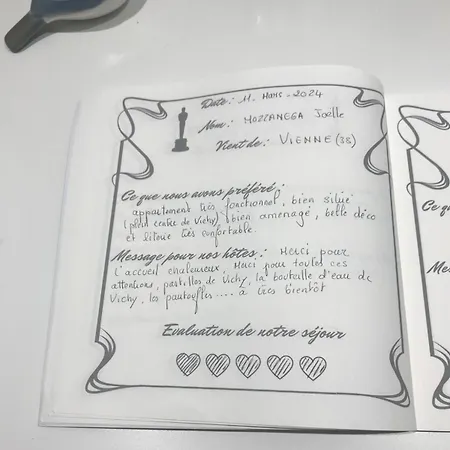 Date : 11. Mars - 2024
Nom : MOZZANEGA Joëlle
Vient de : VIENNE (38)
Ce que nous avons préféré :
appartement très fonctionnel, bien situé
(plein centre de Vichy), bien aménagé, belle déco
et literie très confortable.
Message pour nos hôtes : Merci pour
l'accueil chaleureux, Merci pour toutes ces
attentions, pastilles de Vichy, la bouteille d'eau de
Vichy, les pantoufles .... à très bientôt
Evaluation de notre séjour
Ce qu
Me